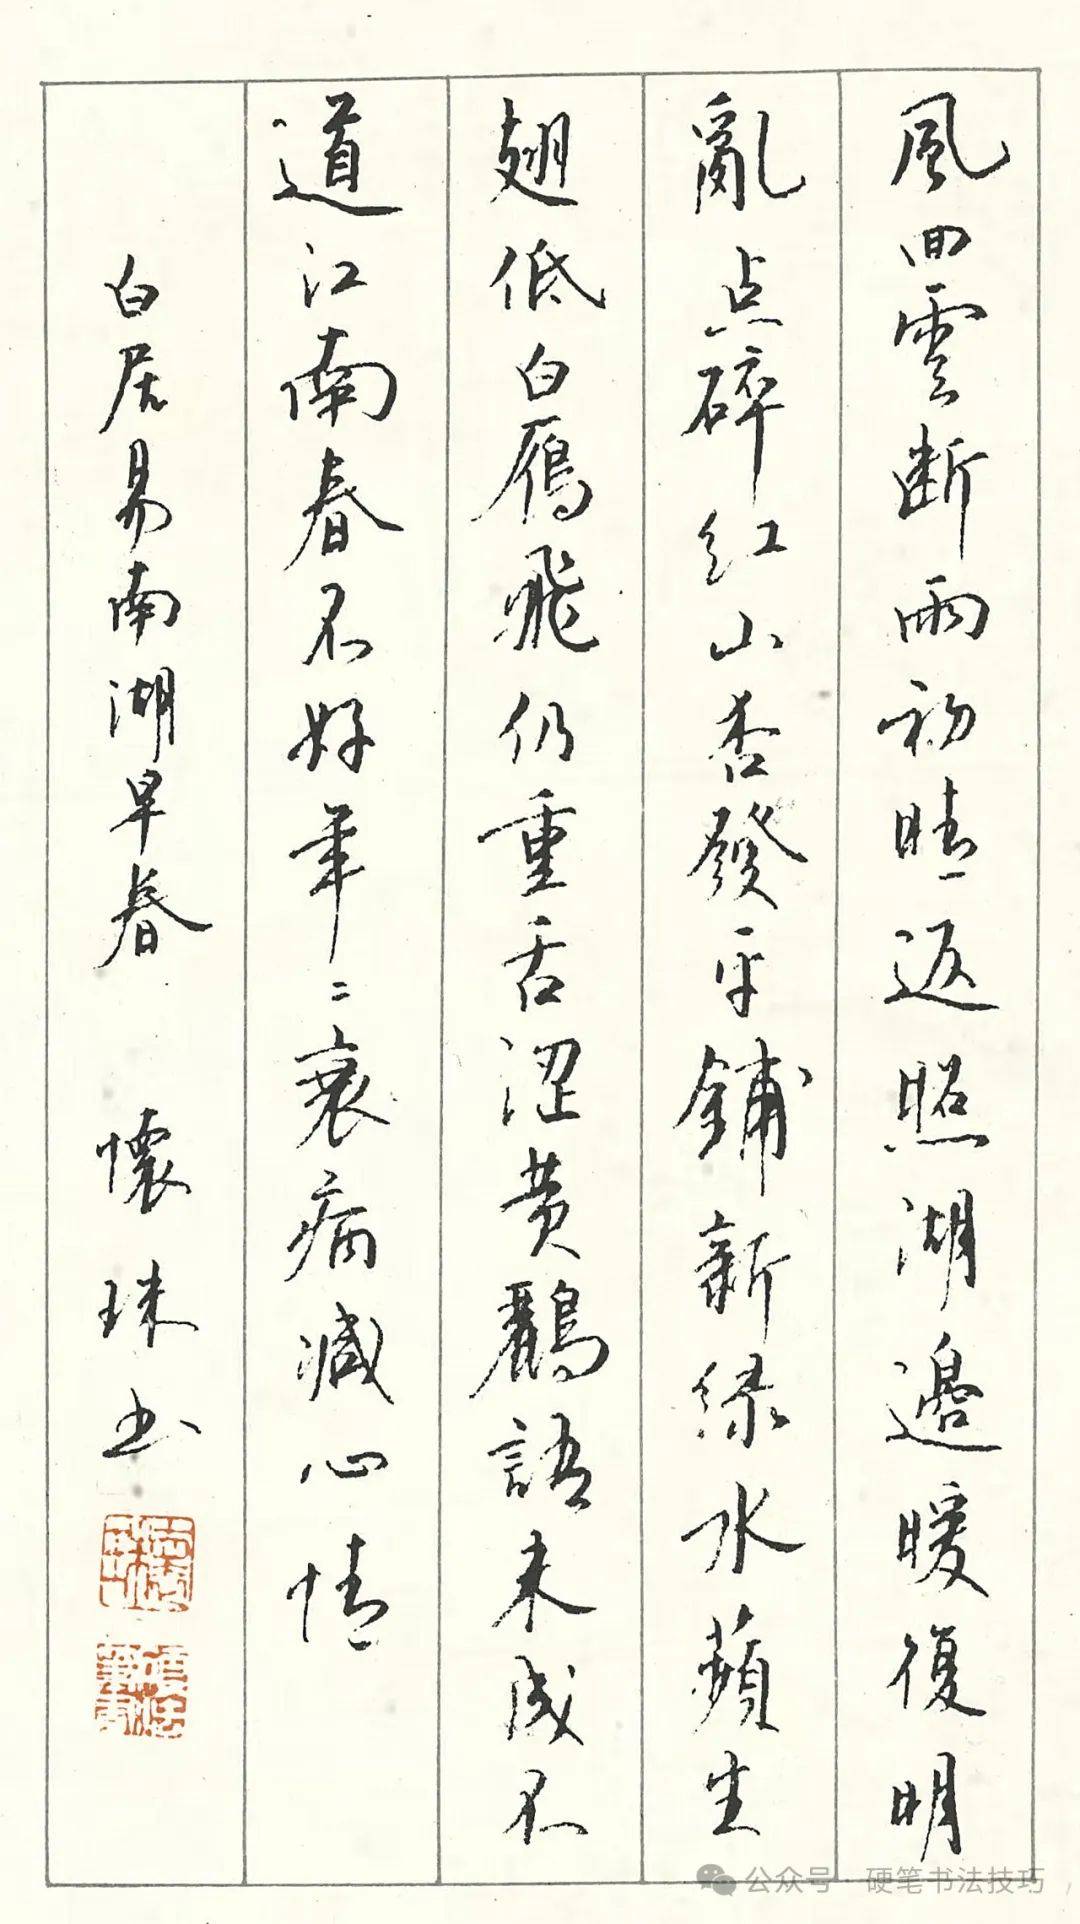 風回雲断雨初晴返照湖邊暖復明
亂点碎红山杏發平鋪新绿水蘋生
翅低白雁飛仍重舌涩黄鸝語未成不
道江南春不好年〻衰病减心情
白居易南湖早春 懷珠书
公众号·硬笔书法技巧